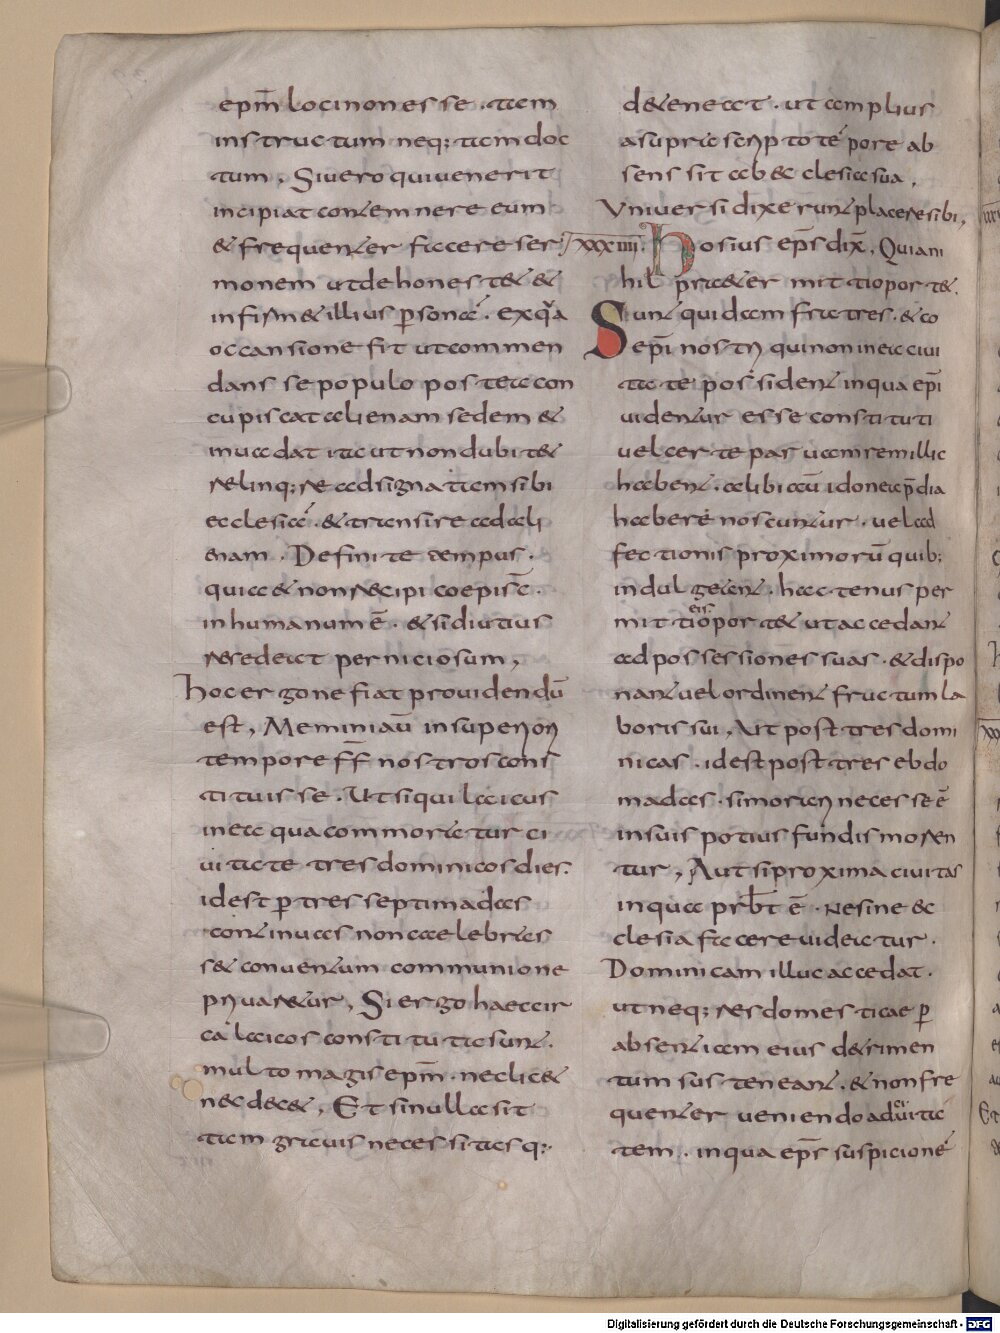 ep̄m loci non esse . tam
instructum neq; tam doc
tum , Si uero qui uenerit
incipiat contemnere eum
& frequenter facere ser
monem ut dehonest& &
infirm& illius p̱sonā . ex qua
occansione fit ut commen
dans se populo postea con
cupiscat alienam sedem &
inuadat ita ut non dubit&
relinq;re adsignatam sibi
ecclesiā . & transire ad ali
enam . Definite tempus .
quia & non recipi coepisc̄ .
inhumanum ē . & si diutius
resedeat perniciosum ,
hoc ergo ne fiat prouidendū
est , Meminiaū in superiori
tempore f̄f̄ nostros cons
tituisse . Ut si qui laicus
in ea qua commoratur ci
uitate tres dominicos dies .
id est p̱ tres septimadas
continuas non caelebras
s& conuentum communione
priuaretur , Si ergo haec cir
ca laicos constituta sunt .
multo magis ep̄m . nec lic&
nec dec& , Et si nulla sit
tam grauis necessitas q;
d&eneat . ut amplius
a supra scripto tēpore ab
sens sit ab ecclesia sua .
Vniuersi dixerunt placere sibi ,
XXXIIII . hosius ep̄s dix̄ , Quia ni
hil pra&er mittioport& .
Sunt quidam fratres . & co
ep̄i nostri qui non in ea ciui
tate possident in qua ep̄i
uidentur esse constituti
uel certe paruam rem illic
habent . alibi aū idonea p̄dia
habere noscuntur . uel ad
fectiones proximorū quib;
indulgeant . hactenus per
mitti eis oport& ut accedant
ad possessiones suas . & dispo
nant uel ordinent fructum la
boris sui , Ut post tres domi
nicas . id est post tres ebdo
madas . si morari necesse ē
in suis potius fundis moren
tur , Aut si proxima ciuitas
in qua prb̄t ē . ne sine &c
clesia facere uideatur .
Dominicam illuc accedat .
ut neq; res domesticae p̱
absentiam eius d&rimen
tum susteneant . & non fre
quenter ueniendo ad eū uita
tem . in qua ep̄s suspicionē
Digitalisierung gefördert durch die Deutsche Forschungsgemeinschaft - DFG